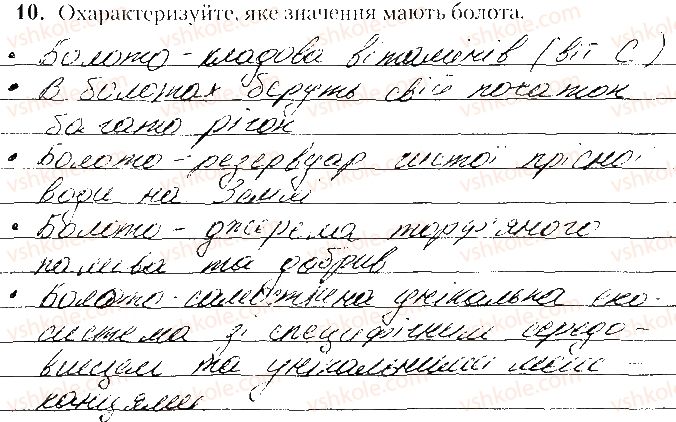 10. Охарактеризуйте, яке значення мають болота.
• Болото - кладова вітамінів (віт С)
• В болотах беруть свій початок
багато річок
• Болото - резервуар чистої прісної
води на Землі
• Болото - джерела торф'яного
палива та добрив
• Болото - самостійна унікальна еко-
система зі специфічним середо-
вищем та унікальними меш-
канцями.